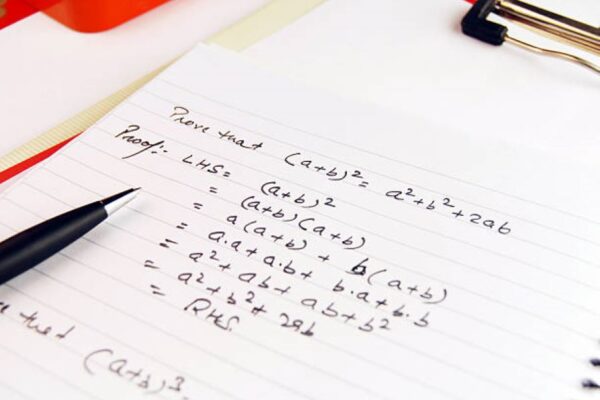 Prove that (a+b)² = a²+b²+2ab
Proof:- LHS= (a+b)²
= (a+b)(a+b)
= a(a+b) + b(a+b)
= a.a+a.b+ b.a+b.b
= a²+ ab+ ab+b²
= a²+b²+ 2ab
= RHS.
that (a+b)³